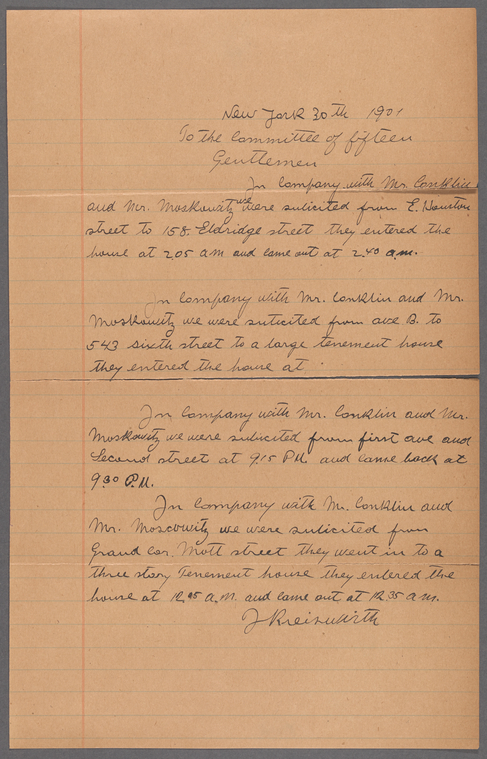 New York 30th 1901
To the Committee of fifteen
Gentlemen
In Company with Mr. Conklin
and Mr. Moskowitz we were sulicited from E. Houston
street to 158 Eldridge street they entered the
house at 2 05 a m and came out at 2 40 a.m.
In Company with Mr. Conklin and Mr.
Moskowitz we were suticited from ave B. to
543 sixth street to a large tenement house
they entered the house at
In Company with Mr. Conklin and Mr.
Moskowitz we were sulicited from first ave and
Second street at 9 15 P M and came back at
9 30 P.M.
In Company with M. Conklin and
Mr. Moscowitz we were suticited from
Grand Cor. Mott street they went in to a
three story Tenement house they entered the
house at 12 05 a.m. and came out at 12 35 a m.
J Kreiswirth